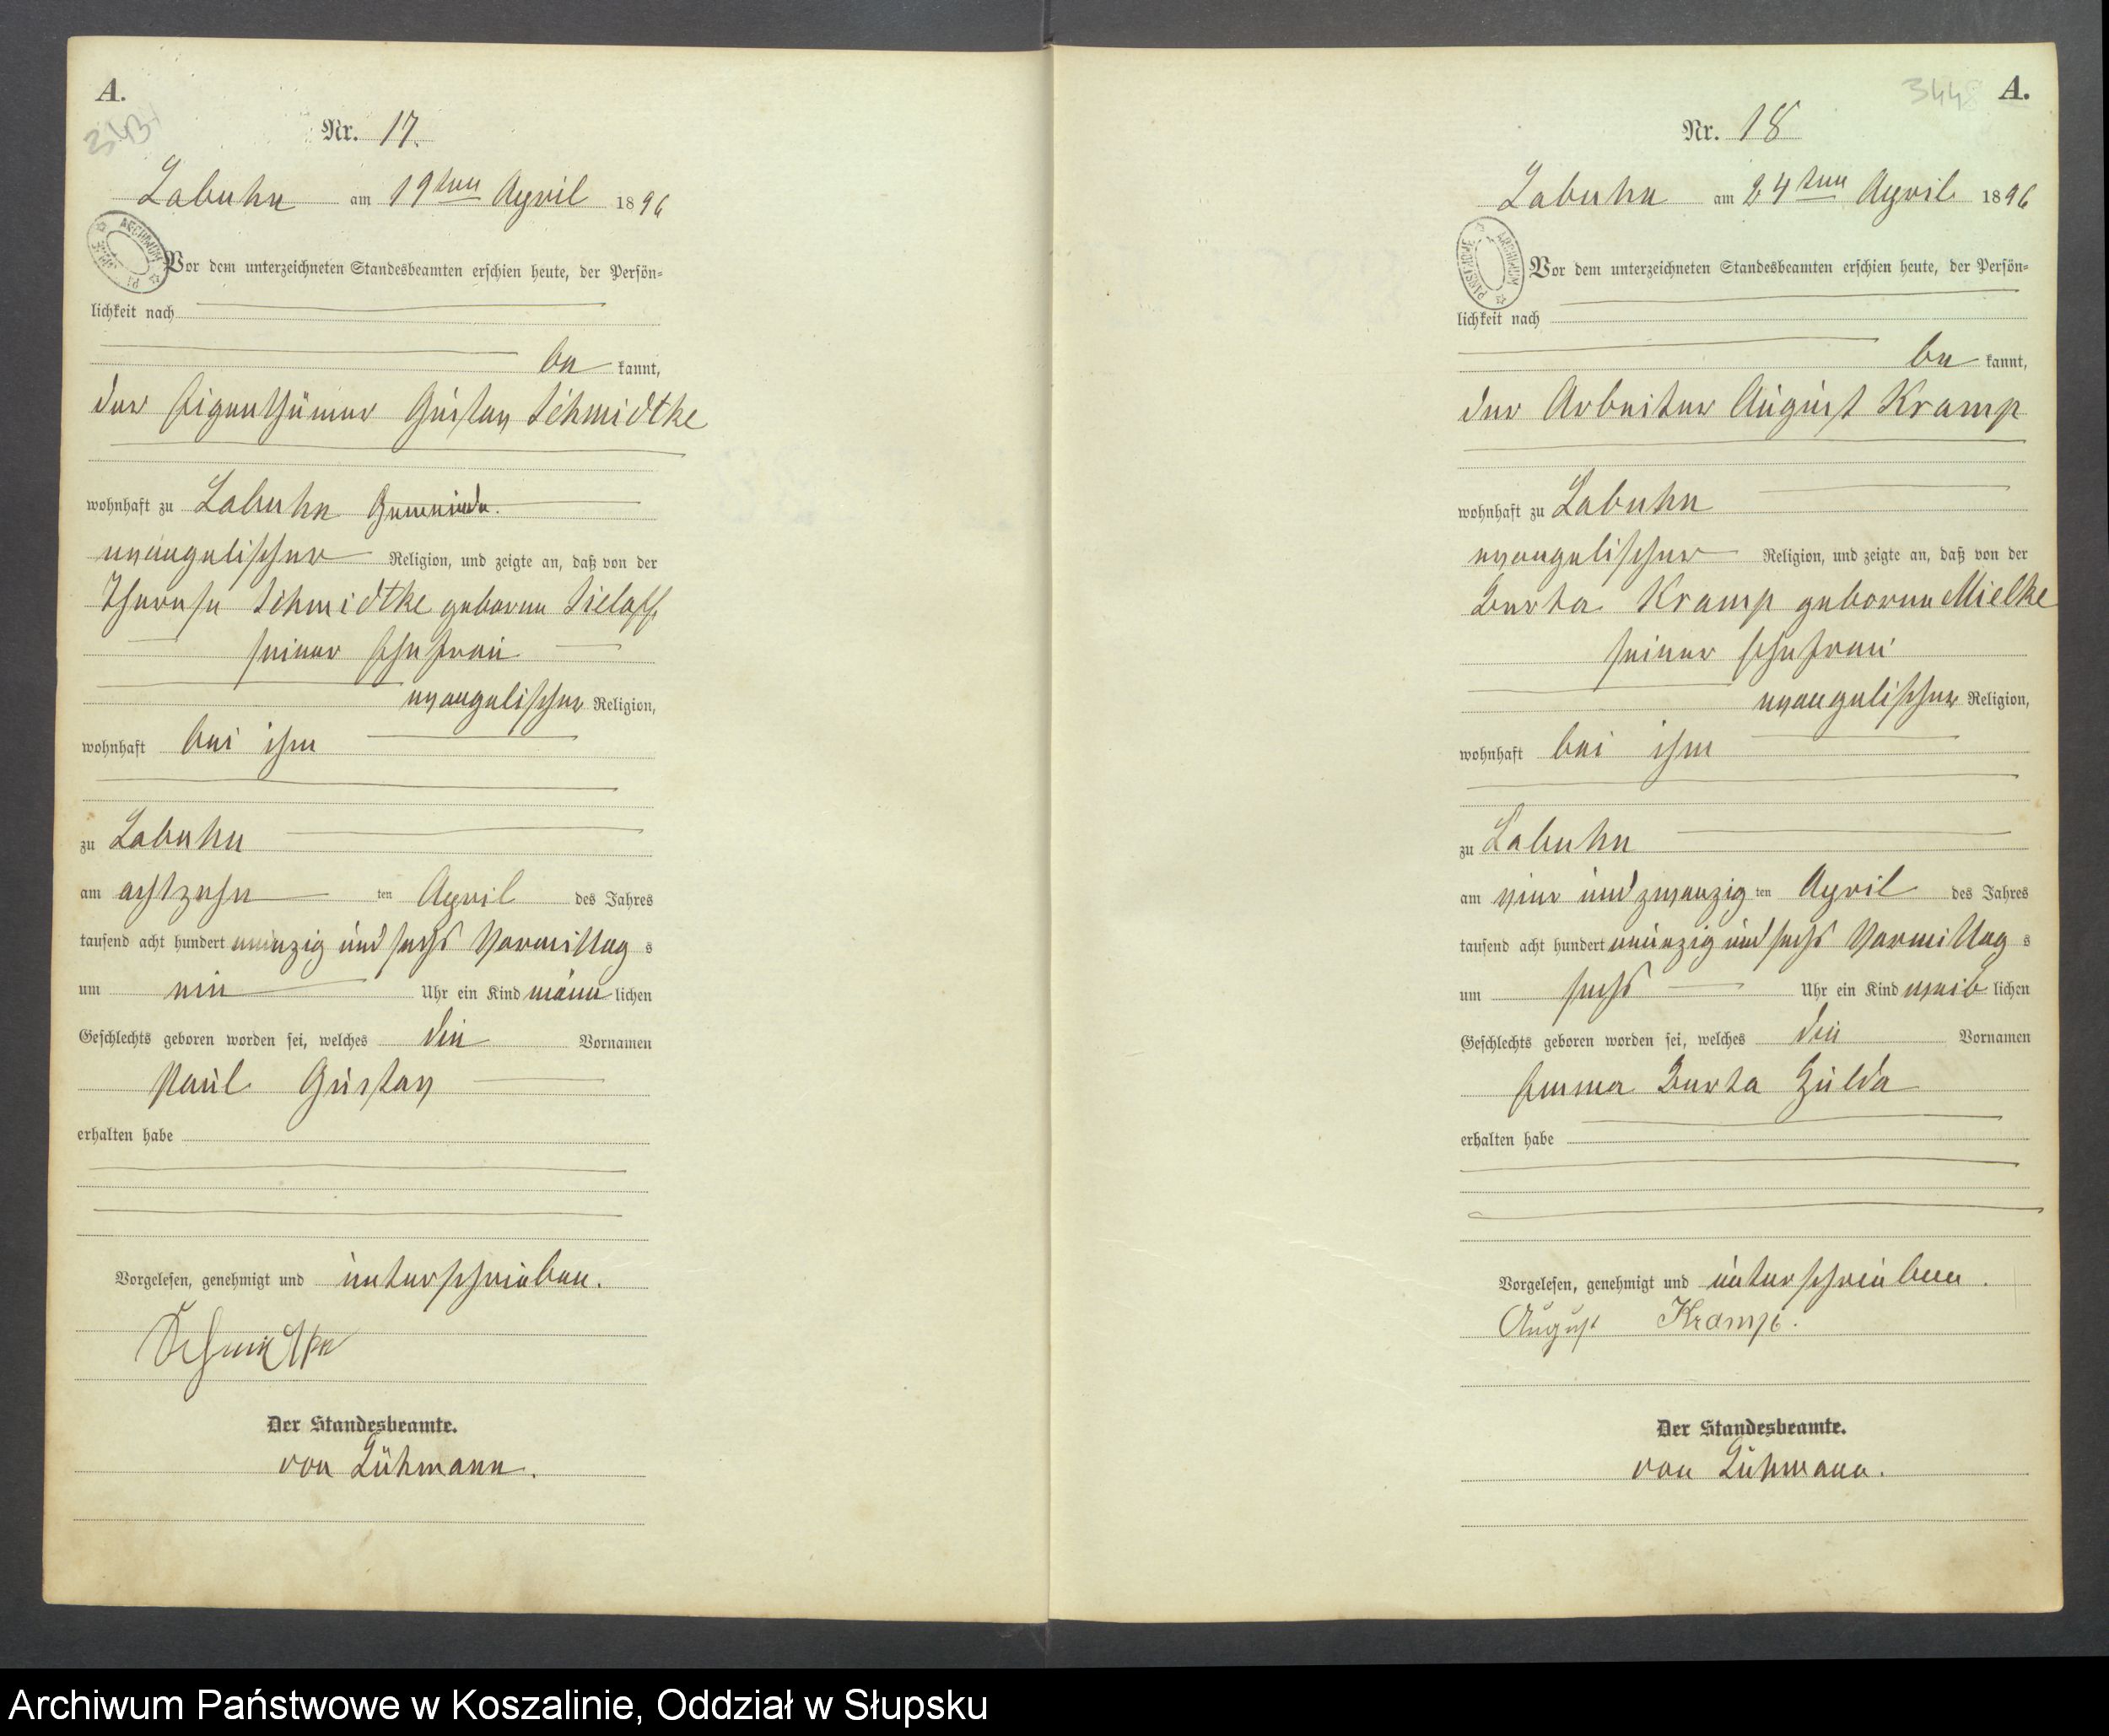 A.
Nr. 17.
Labuhn am 19ten April 1896
Vor dem unterzeichneten Standesbeamten erschien heute, der Persön-
lichkeit nach
be kannt,
der Eigenthümer Gustav Schmidtke
wohnhaft zu Labuhn Gemeinde.
evangelischer Religion, und zeigte an, daß von der
Therese Schmidtke geborene Sielaff,
seiner Ehefrau
evangelischer Religion,
wohnhaft bei ihm
zu Labuhn
am achtzehn ten April des Jahres
tausend acht hundert neunzig und sechs Vormittag s
um ein Uhr ein Kind männ lichen
Geschlechts geboren worden sei, welches die Vornamen
Paul Gustav
erhalten habe
Vorgelesen, genehmigt und unterschrieben.
Schmidtke
Der Standesbeamte.
von Lühmann.
3448 A.
Nr. 18
Labuhn am 24ten April 1896
Vor dem unterzeichneten Standesbeamten erschien heute, der Persön-
lichkeit nach
be kannt,
der Arbeiter August Kramp
wohnhaft zu Labuhn
evangelischer Religion, und zeigte an, daß von der
Berta Kramp geborene Mielke
seiner Ehefrau
evangelischer Religion,
wohnhaft bei ihm
zu Labuhn
am vier und zwanzig ten April des Jahres
tausend acht hundert neunzig und sechs Vormittag s
um sechs Uhr ein Kind weib lichen
Geschlechts geboren worden sei, welches die Vornamen
Emma Berta Hulda
erhalten habe
Vorgelesen, genehmigt und unterschrieben.
August Kramp.
Der Standesbeamte.
von Lühmann.
Archiwum Państwowe w Koszalinie, Oddział w Słupsku